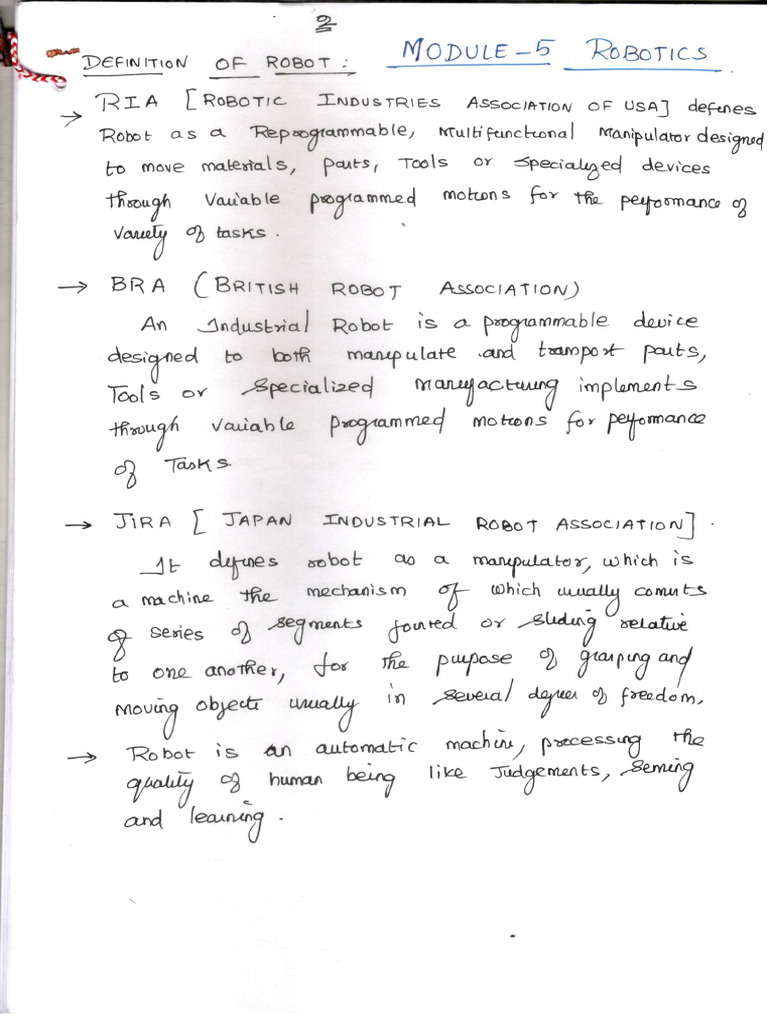 2
DEFINITION OF ROBOT: MODULE-5 ROBOTICS
→ RIA [ROBOTIC INDUSTRIES ASSOCIATION OF USA] defenes
Robot as a Reprogrammable, Multifunctional Manipulator designed
to move materials, parts, Tools or specialized devices
through Variable programmed motions for the performance of
variety of tasks.
→ BRA (BRITISH ROBOT ASSOCIATION)
An Industrial Robot is a programmable device
designed to both manipulate and transport parts,
Tools or Specialized Manufacturing implements
through variable programmed motions for performance
of Tasks.
→ JIRA [JAPAN INDUSTRIAL ROBOT ASSOCIATION].
It defines robot as a manipulator, which is
a machine the mechanism of which usually consists
of series of segments jointed or sliding relative
to one another, for the purpose of grasping and
moving objects usually in several degree of freedom.
→ Robot is an automatic machine, processing the
quality of human being like Judgements, sensing
and learning.